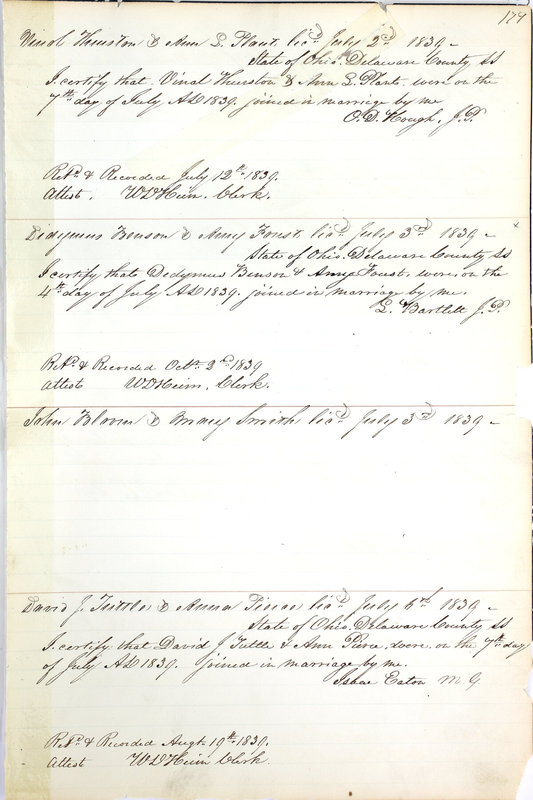 179
Vinal Thurston & Ann L. Plant, licd July 2nd 1839 –
State of Ohio. Delaware County ss
I certify that Vinal Thurston & Ann L. Plant were on the
7th day of July AD 1839. joined in marriage by me
O. D. Hough, J. P.
Retd & Recorded July 12th 1839.
Attest. W D Heim, Clerk.
Didymus Benson & Amy Foust, licd July 3rd 1839 –
State of Ohio. Delaware County ss
I certify that Dedymus Benson & Amy Foust, were, on the
4th day of July AD 1839. joined in marriage by me.
L. Bartlett J. P.
Retd & Recorded Octr 2nd 1839
Attest W D Heim, Clerk.
John Bloom & Smith licd July 3rd 1839 –
David J. Tuttle & Anna Pierce licd July 6th 1839 –
State of Ohio. Delaware County ss
I certify that David J Tuttle & Ann Pierce, were, on the 7th day
of July AD 1839. joined in marriage by me.
Isaac Eaton M. G.
Retd & Recorded Augt 19th 1839.
Attest W D Heim Clerk.